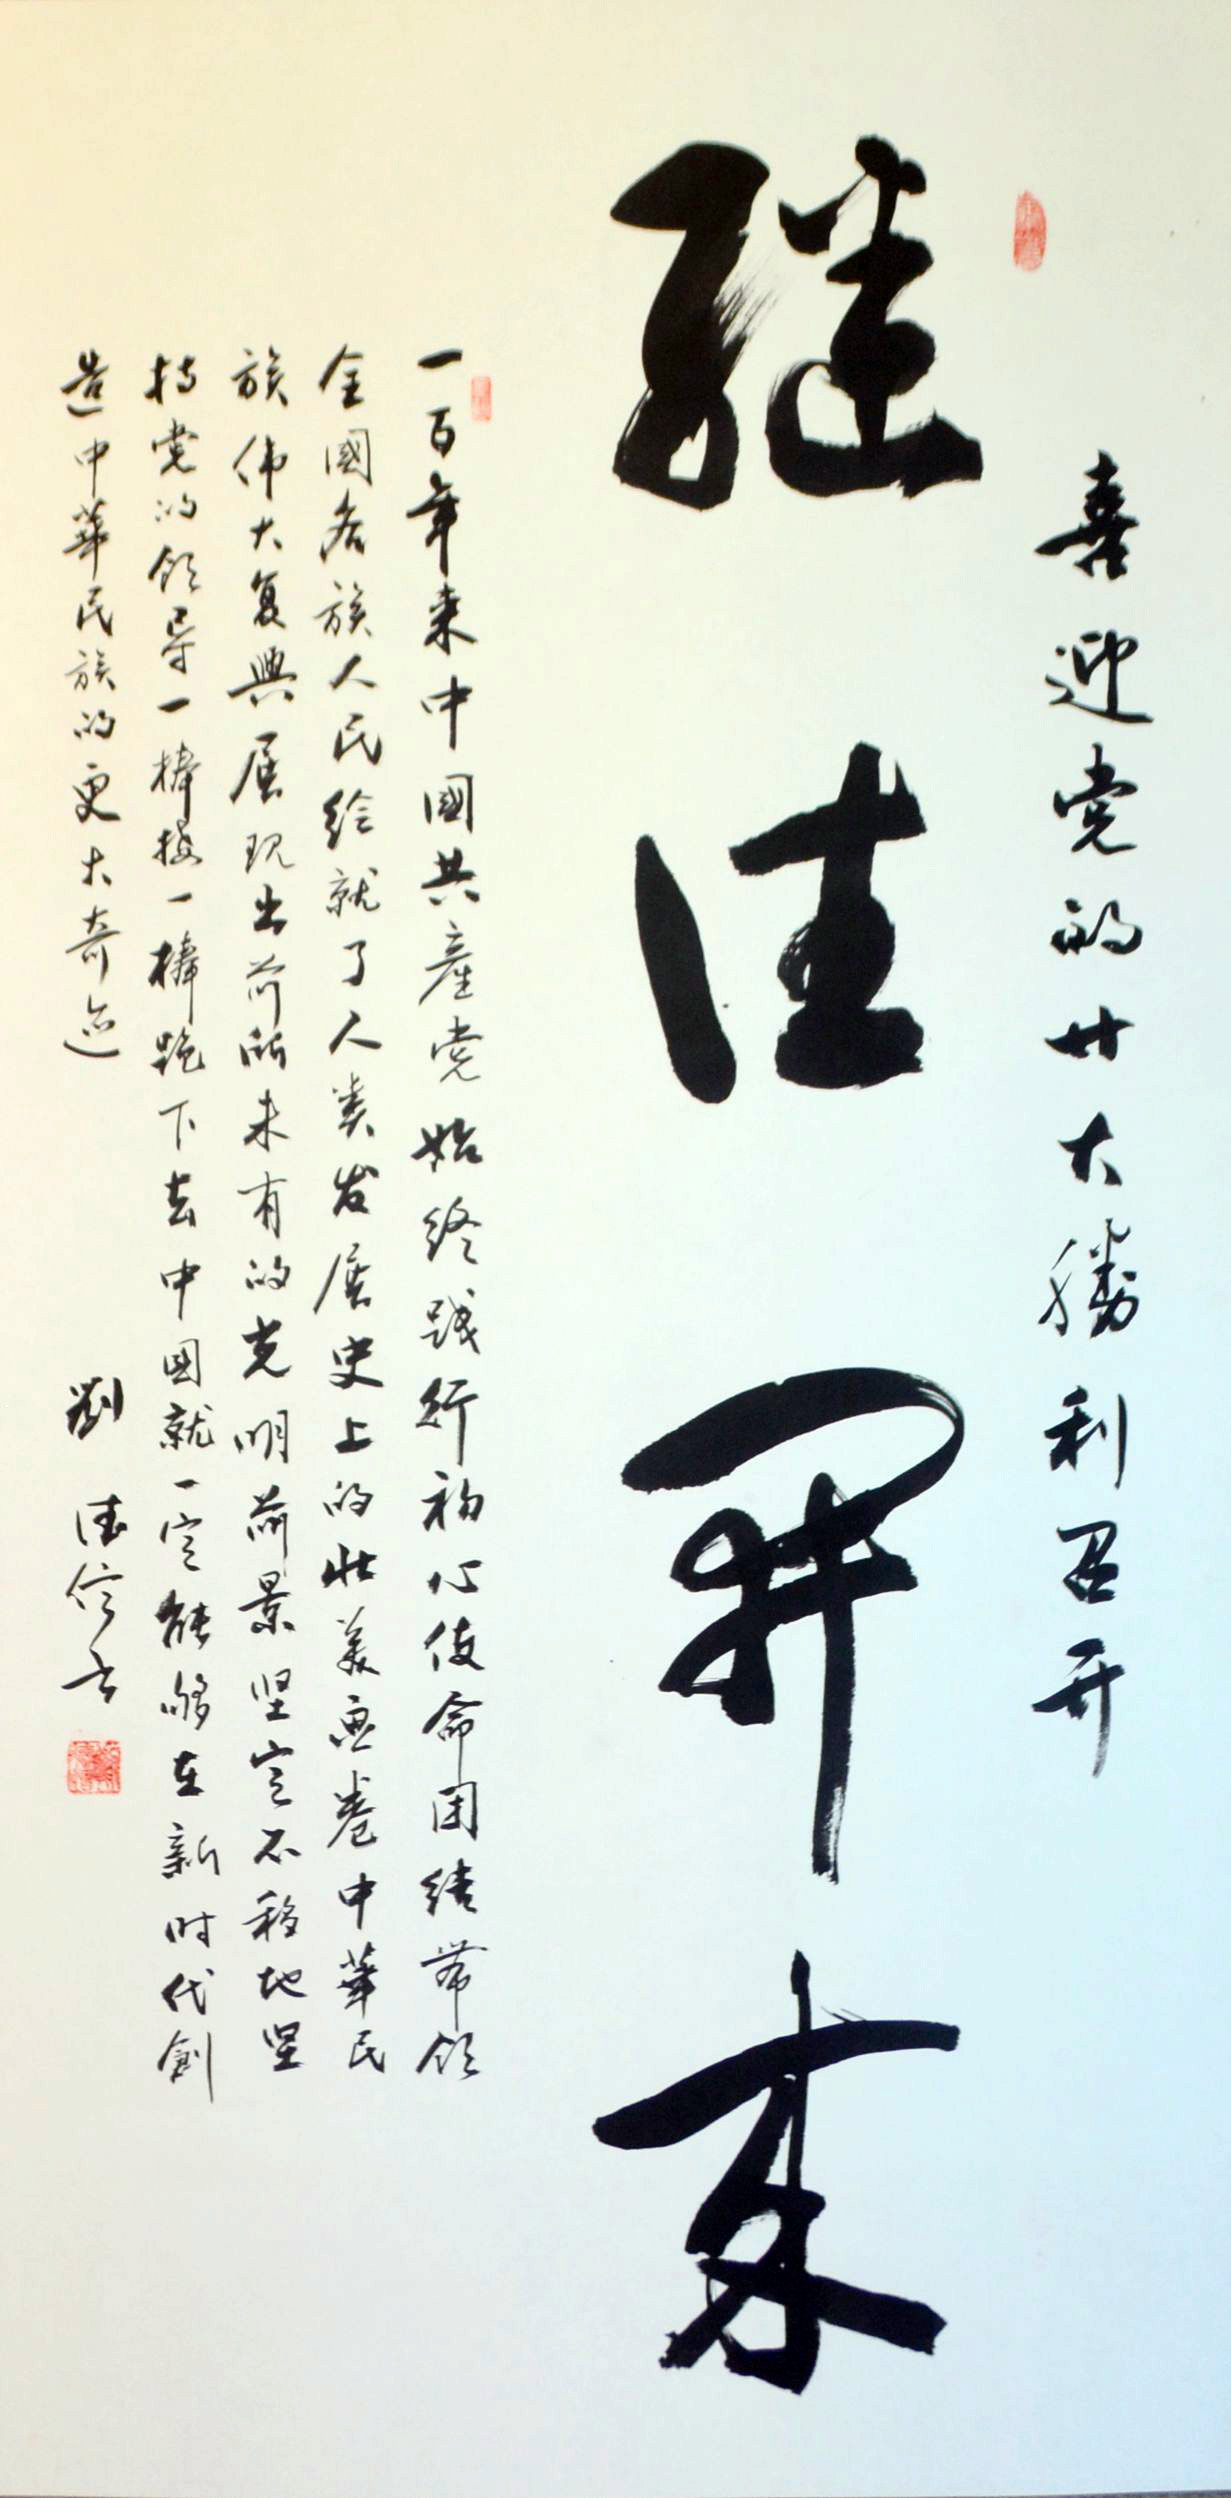 喜迎党的廿大勝利召开
继往開来
一百年来中國共産党始终践行初心使命团结带领
全國各族人民绘就了人类发展史上的壮美画卷中華民
族伟大复興展现出前所未有的光明前景坚定不移地坚
持党的领导一棒接一棒跑下去中国就一定能够在新时代創
造中華民族的更大奇迹
劉德信书